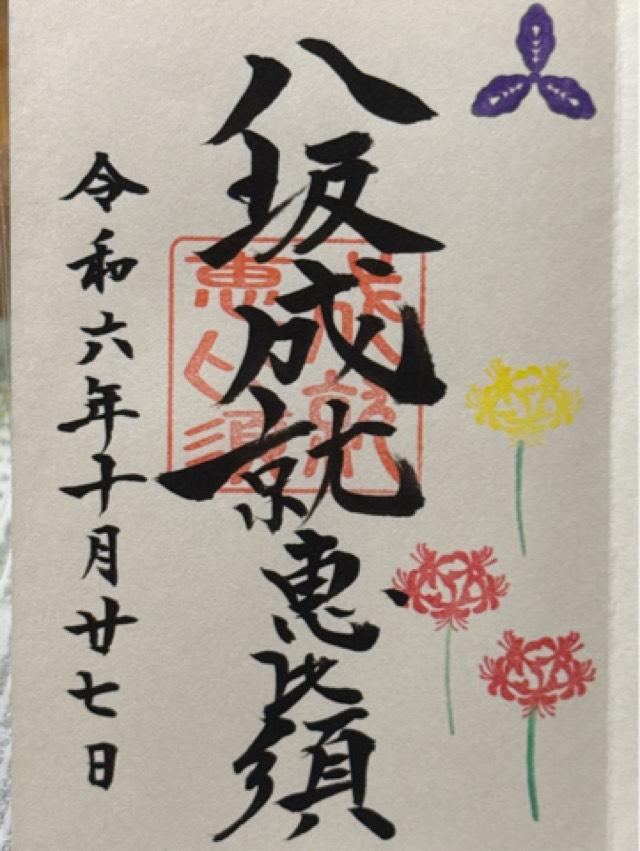 八坂成就恵比須
成就
恵比須
令和六年十月廿七日